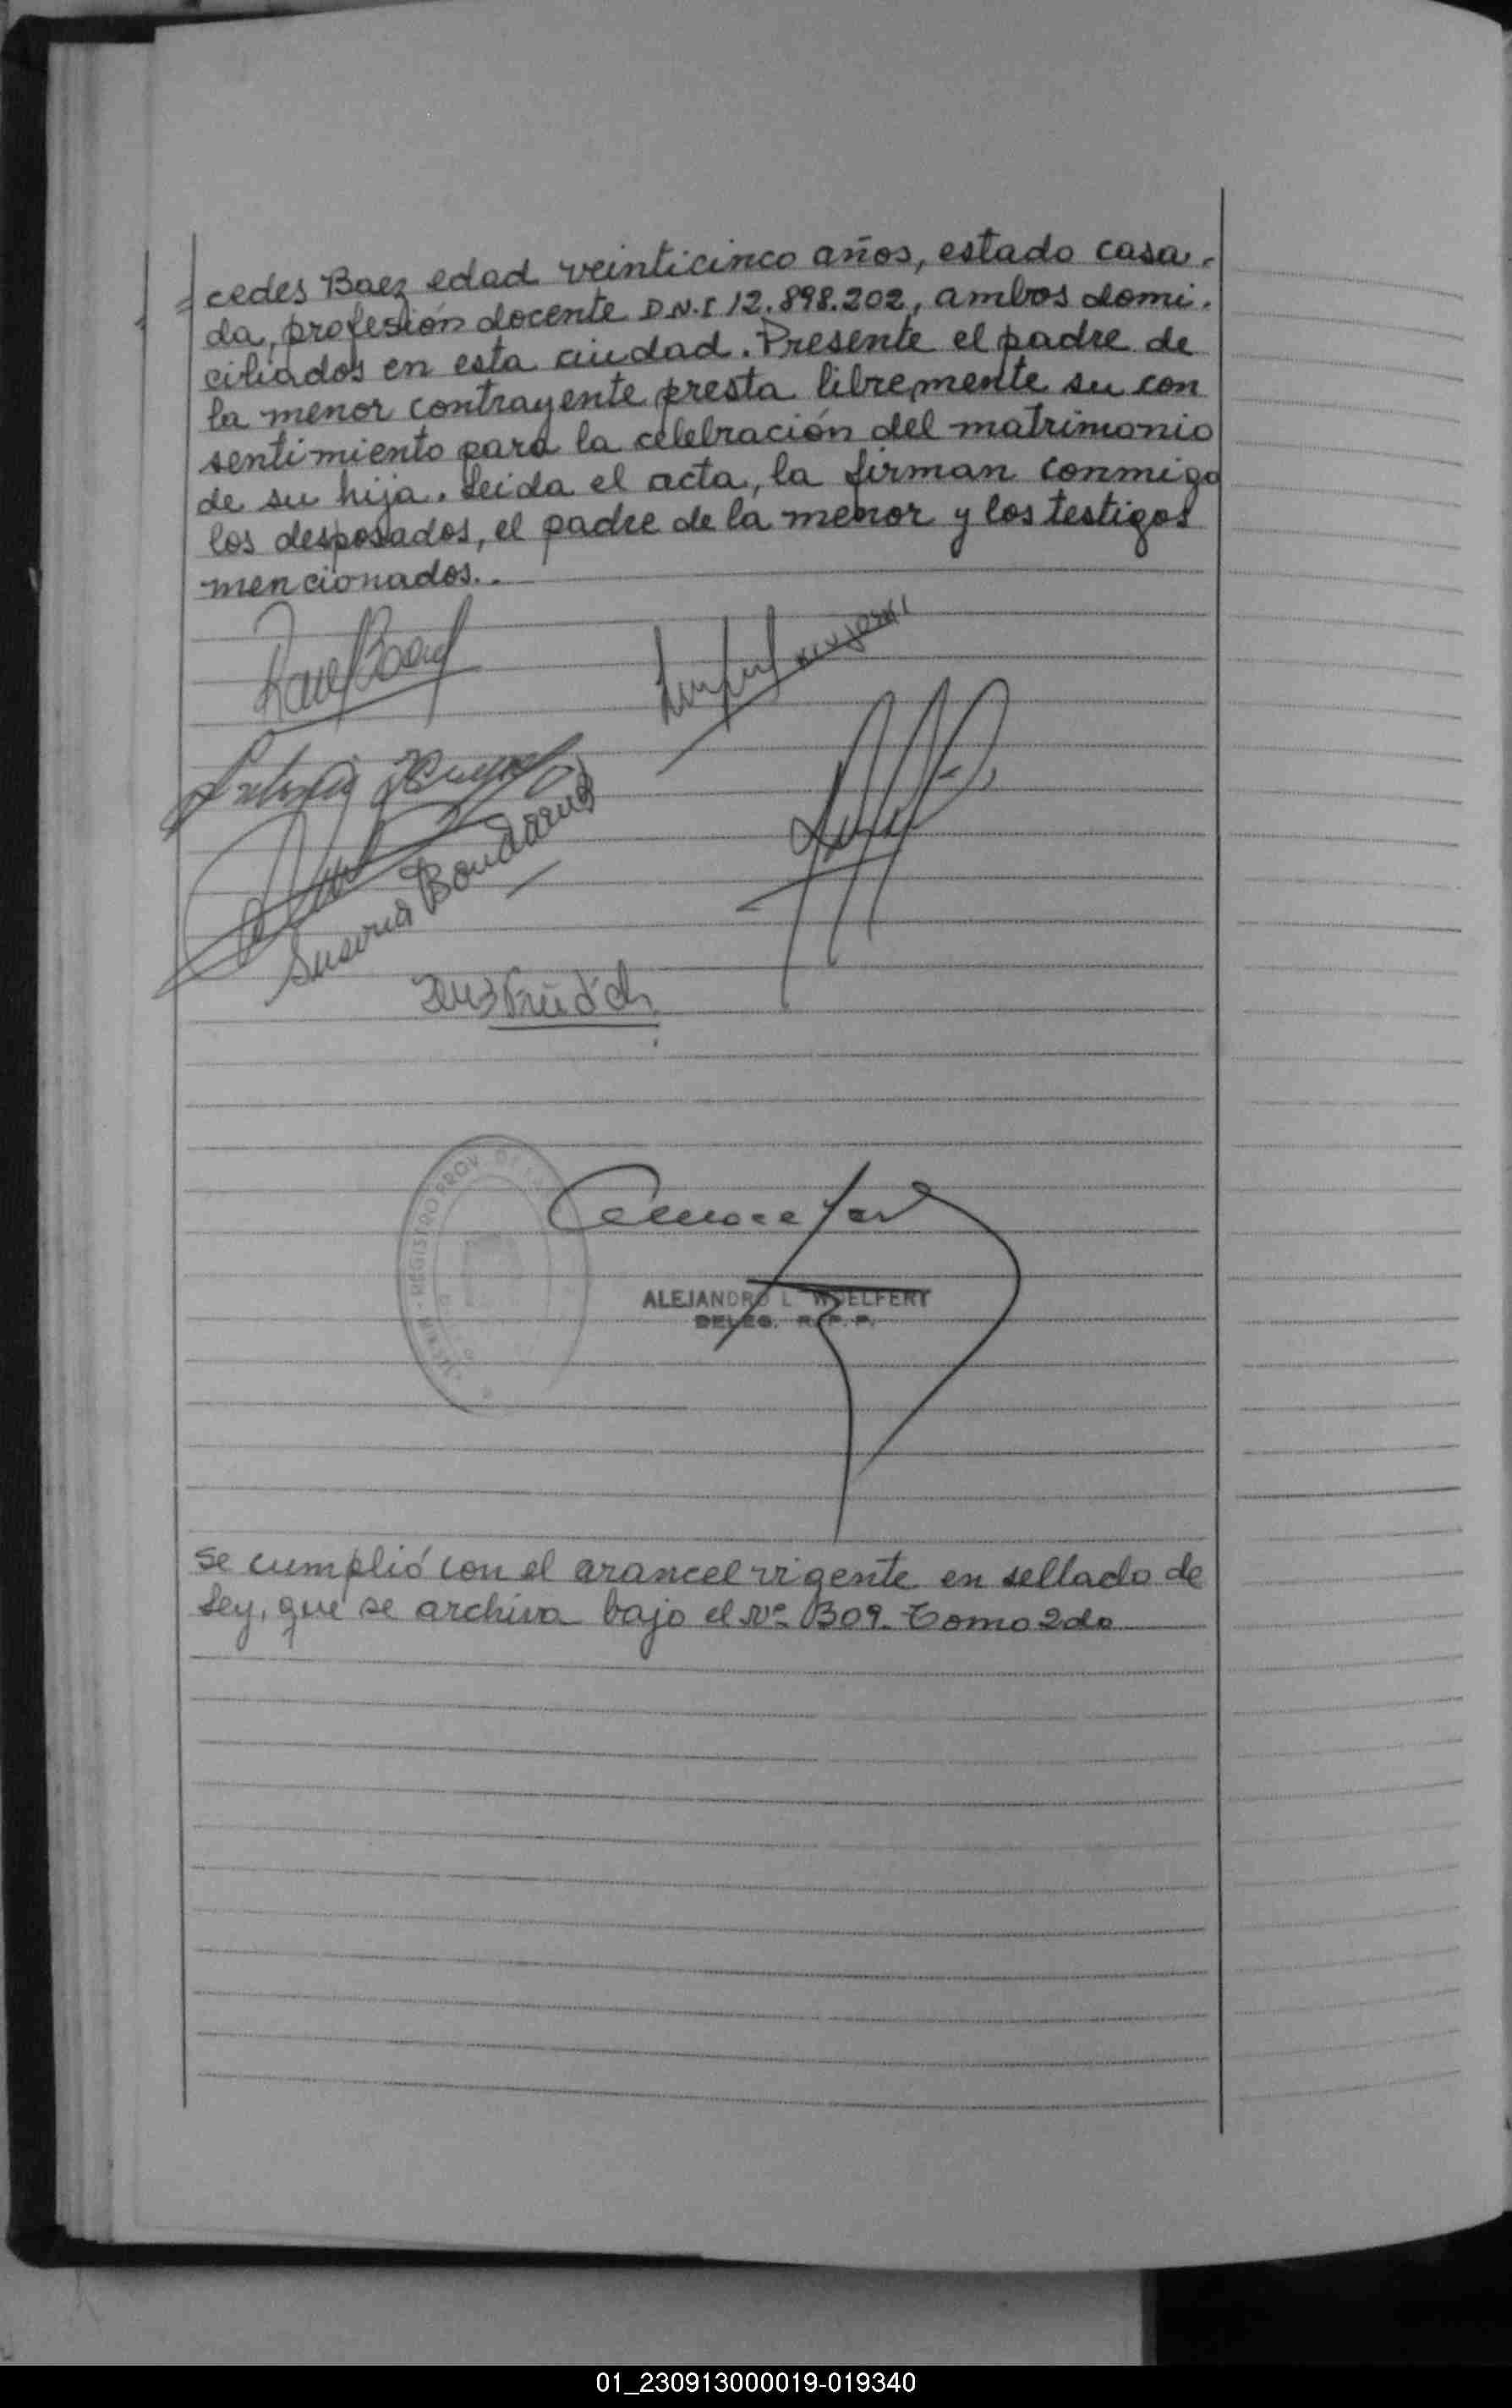 cedes Baez edad veinticinco años, estado casa-
da, profesión docente D.N.I 12.898.202, ambos domi-
ciliados en esta ciudad. Presente el padre de
la menor contrayente presta libremente su con
sentimiento para la celebración del matrimonio
de su hija. Leida el acta, la firman conmigo
los desposados, el padre de la menor y los testigos
mencionados..
Susana Bondaruk
REGISTRO PROV. DE
ALEJANDRO L. WOELFERT
DELEG. R. P. P.
Se cumplió con el arancel vigente en sellado de
Ley, que se archiva bajo el Nº 1309. Tomo 2do
01_230913000019-019340